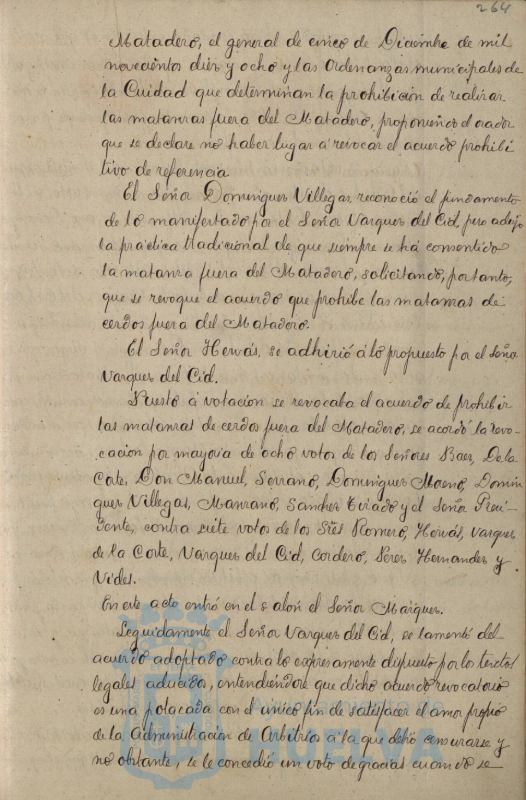 264
Matadero, el general de cinco de Diciembre de mil
novecientos diez y ocho y las Ordenanzas municipales de
la Cuidad que determinan la prohibición de realizar
las matanzas fuera del Matadero, proponiendo el orador
que se declare no haber lugar a revocar el acuerdo prohibi
tivo de referencia
El Señor Dominguez Villegas, reconoció el fundamento
de lo manifestado por el Señor Vazquez del Cid, pero adujo
la práctica tradicional de que siempre se ha consentido
la matanza fuera del Matadero, solicitando, por tanto,
que se revoque el acuerdo que prohibe las matanzas de
cerdos fuera del Matadero.
El Señor Hervás, se adhirió á lo propuesto por el Señor
Vazquez del Cid.
Puesto á votación se revocaba el acuerdo de prohibir
las matanzas de cerdos fuera del Matadero, se acordó la revo-
cación por mayoria de ocho votos de los Señores Baez, De la
Corte, Don Manuel, Serrano, Dominguez Moeno, Domin
guez Villegas, Manzano, Sanchez Tirado y el Señor Presi-
dente, contra siete votos de los Sres Romero, Hervás, Vazquez
de la Corte, Vazquez del Cid, Cordero, Perez Hernandez y
Vides.
En este acto entró en el salón el Señor Marquez.
Seguidamente el Señor Vazquez del Cid, se lamentó del
acuerdo adoptado contra lo expresamente dispuesto por los textos
legales aducidos, entendiéndose que dicho acuerdo revocatorio
es una polacada con el único fin de satisfacer el amor propio
de la Administración de Arbitrios a la que debió censurarse y
no obstante, se le concedió un voto de gracias cuando se
Ayuntamiento de
HUELVA